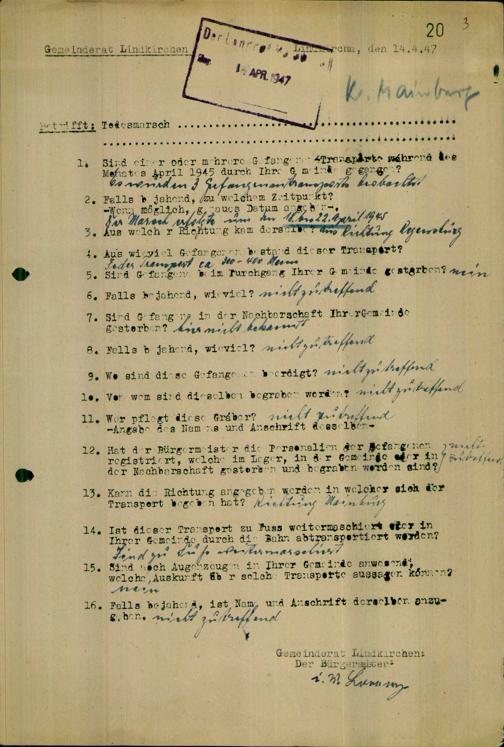 20 3
Gemeinderat Lindkirchen Lindkirchen, den 14.4.47
Der Landrat
APR. 1947
K. Mainburg
Betrifft: Todesmarsch
1. Sind einer oder mehrere Gefangenen-Transporte während des
Monats April 1945 durch Ihre Gemeinde gegangen?
Es wurden 3 Gefangenentransporte beobachtet
2. Falls bejahend, zu welchem Zeitpunkt?
-Wenn möglich, genaues Datum angeben-.
Der Marsch erfolgte um den 22. April 1945
3. Aus welcher Richtung kam derselbe? aus Richtung Regensburg
4. Aus wieviel Gefangenen bestand dieser Transport?
Jeder Transport ca. 300-400 Mann
5. Sind Gefangene beim Durchgang Ihrer Gemeinde gestorben? nein
6. Falls bejahend, wieviel? nicht zutreffend
7. Sind Gefangene in der Nachbarschaft Ihrer Gemeinde
gestorben? hier nicht bekannt
8. Falls bejahend, wieviel? nicht zutreffend
9. Wo sind diese Gefangenen beerdigt? nicht zutreffend
10. Von wem sind dieselben begraben worden? nicht zutreffend
11. Wer pflegt diese Gräber? nicht zutreffend
-Angabe des Namens und Anschrift desselben-
12. Hat der Bürgermeister die Personalien der Gefangenen nicht
registriert, welche im Lager, in der Gemeinde oder in zutreffend
der Nachbarschaft gestorben und begraben worden sind?
13. Kann die Richtung angegeben werden in welcher sich der
Transport begeben hat? Richtung Mainburg
14. Ist dieser Transport zu Fuss weitermarschiert oder in
Ihrer Gemeinde durch die Bahn abtransportiert worden?
Sind zu Fuß weitermarschiert
15. Sind noch Augenzeugen in Ihrer Gemeinde anwesend,
welche Auskunft über solche Transporte aussagen können?
nein
16. Falls bejahend, ist Name und Anschrift derselben anzu-
geben. nicht zutreffend
Gemeinderat Lindkirchen:
Der Bürgermeister
i. V.